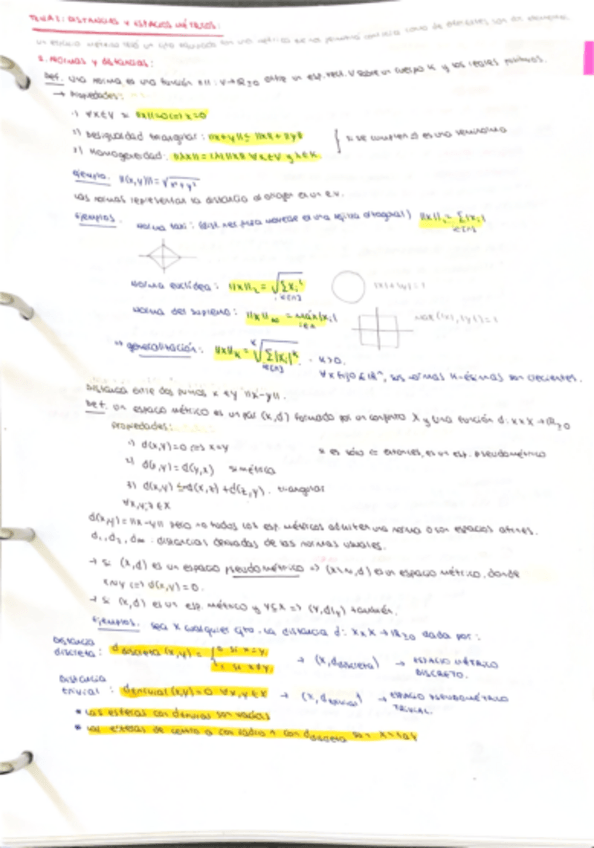 TEMA 1: DISTANCIAS Y ESPACIOS MÉTRICOS:
Un espacio métrico es un
1. Normas y distancias:
Def. Una norma es una función ||·||: V→ℝ≥0 entre un esp. vect. V sobre un cuerpo K y los reales positivos.
→ Propiedades:
1) ∀x∈V si ||x||=0 ⟺ x=0
2) Desigualdad triangular: ||x+y|| ≤ ||x||+||y||
3) Homogeneidad: ||λx||=|λ|·||x|| ∀x∈V y λ∈K.
si se cumplen es una seminorma
Ejemplo. ||(x,y)||=√x²+y²
Las normas representan la distancia al origen en un e.v.
Ejemplos. Norma taxi: (dist. nec. para moverse en una rejilla ortogonal) ||x||₁=Σ|xᵢ|
Norma euclídea: ||x||₂=√Σxᵢ²
Norma del supremo: ||x||∞=máx|xᵢ|
max(|x|,|y|)=1
→ generalización: ||x||ₖ=ᵏ√Σ|xᵢ|ᵏ . k>0.
∀x fijo ∈ ℝⁿ, sus normas k-ésimas son crecientes.
Distancia entre dos puntos x e y ||x-y||.
Def. Un espacio métrico es un par (X,d) formado por un conjunto X y una función d: X×X→ℝ≥0
Propiedades:
1) d(x,y)=0 ⟺ x=y
si es sólo ⇐ entonces, es un esp. pseudométrico
2) d(x,y)=d(y,x) simétrica
3) d(x,y)≤d(x,z)+d(z,y). triangular
∀x,y,z∈X
d(x,y)=||x-y|| pero no todos los esp. métricos admiten una norma o son espacios afines.
d₁,d₂,d∞ . distancias derivadas de las normas usuales.
→ si (X,d) es un espacio pseudométrico ⇒ (X\~,d) es un espacio métrico, donde
x~y ⟺ d(x,y)=0.
→ si (X,d) es un esp. métrico y Y⊆X ⇒ (Y,d|y) también.
Ejemplos. Sea X cualquier cjto. La distancia d: X×X→ℝ≥0 dada por:
Distancia discreta: d discreta (x,y)={0 si x=y, 1 si x≠y. → (X,d discreta) → ESPACIO MÉTRICO DISCRETO.
Distancia trivial: d trivial (x,y)=0 ∀x,y∈X → (X,d trivial) → ESPACIO PSEUDOMÉTRICO TRIVIAL.
• Las esferas con d trivial son vacías
• Las esferas de centro a con radio 1 con d discreta son X\{a}